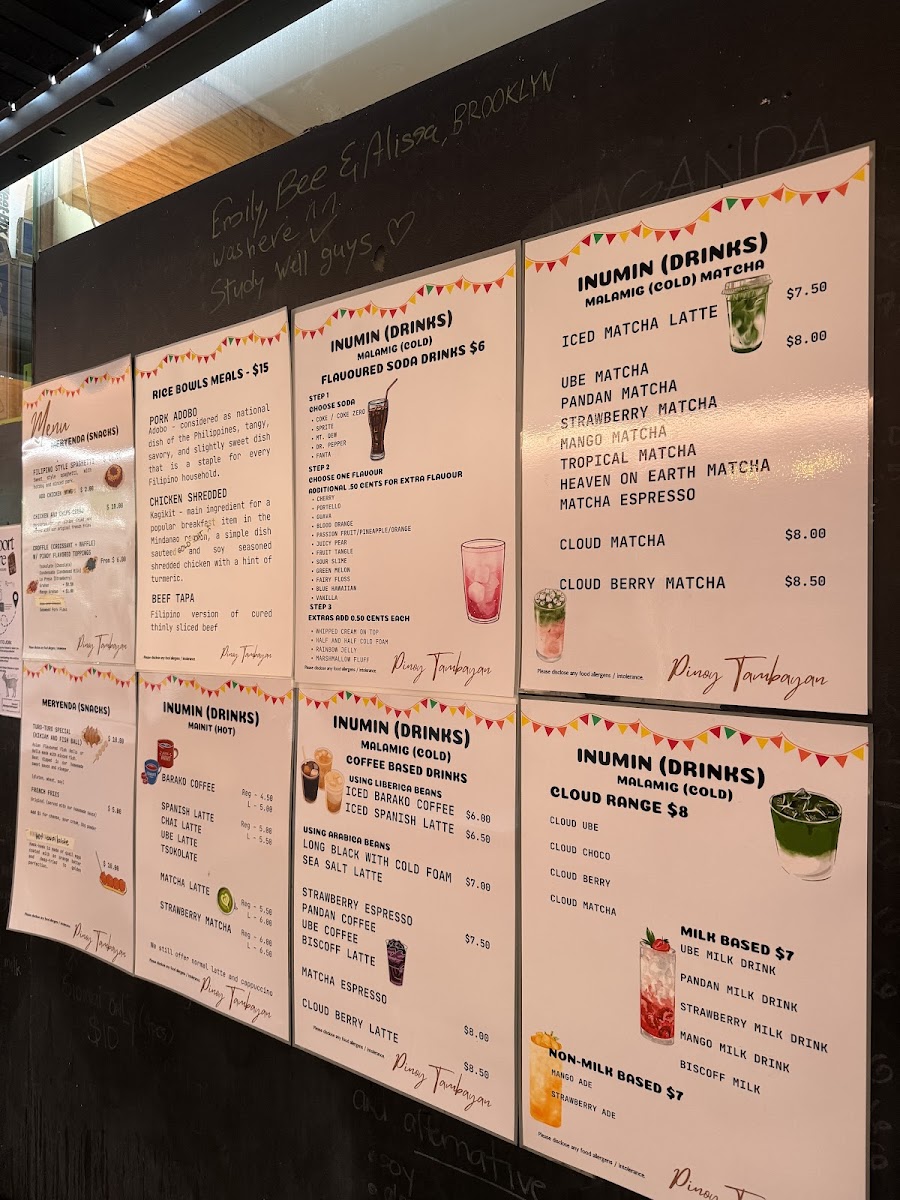 Emily, Bee & Alissa, BROOKLYN
was here
Study well guys ♡
MAGANDA
Menu
MERYENDA (SNACKS)
FILIPINO STYLE SPAGHETTI
ADD CHICKEN $ 2.00
$ 10.00
CROFFLE (CROISSANT + WAFFLE)
W/ PINOY FLAVORED TOPPINGS
From $ 6.00
Please disclose any food allergens / intolerance.
Pinoy Tambayan
RICE BOWLS MEALS - $15
PORK ADOBO
Adobo - considered as national
dish of the Philippines, tangy,
savory, and slightly sweet dish
that is a staple for every
Filipino household.
CHICKEN SHREDDED
Kagikit - main ingredient for a
popular breakfast item in the
Mindanao region, a simple dish
sauteed and soy seasoned
shredded chicken with a hint of
turmeric.
BEEF TAPA
Filipino version of cured
thinly sliced beef
Please disclose any food allergens / intolerance.
Pinoy Tambayan
INUMIN (DRINKS)
MALAMIG (COLD)
FLAVOURED SODA DRINKS $6
STEP 1
CHOOSE SODA
• COKE / COKE ZERO
• SPRITE
• MT. DEW
• DR. PEPPER
• FANTA
STEP 2
CHOOSE ONE FLAVOUR
ADDITIONAL .50 CENTS FOR EXTRA FLAVOUR
• CHERRY
• PORTELLO
• GUAVA
• BLOOD ORANGE
• PASSION FRUIT/PINEAPPLE/ORANGE
• JUICY PEAR
• FRUIT TANGLE
• SOUR SLIME
• GREEN MELON
• FAIRY FLOSS
• BLUE HAWAIIAN
• VANILLA
STEP 3
EXTRAS ADD 0.50 CENTS EACH
• WHIPPED CREAM ON TOP
• HALF AND HALF COLD FOAM
• RAINBOW JELLY
• MARSHMALLOW FLUFF
Please disclose any food allergens / intolerance.
Pinoy Tambayan
INUMIN (DRINKS)
MALAMIG (COLD) MATCHA
ICED MATCHA LATTE $7.50
$8.00
UBE MATCHA
PANDAN MATCHA
STRAWBERRY MATCHA
MANGO MATCHA
TROPICAL MATCHA
HEAVEN ON EARTH MATCHA
MATCHA ESPRESSO
CLOUD MATCHA $8.00
CLOUD BERRY MATCHA $8.50
Please disclose any food allergens / intolerance.
Pinoy Tambayan
MERYENDA (SNACKS)
TURO-TURO SPECIAL
(KIKIAM AND FISH BALL)
$ 10.00
FRENCH FRIES
$ 5.00
$ 10.00
Please disclose any food allergens / intolerance.
Pinoy Tambayan
INUMIN (DRINKS)
MAINIT (HOT)
BARAKO COFFEE
Reg - 4.50
L - 5.00
SPANISH LATTE
CHAI LATTE
UBE LATTE
TSOKOLATE
Reg - 5.00
L - 5.50
MATCHA LATTE
Reg - 5.50
L - 6.00
STRAWBERRY MATCHA
Reg - 6.00
L - 6.50
We still offer normal latte and cappuccino
Please disclose any food allergens / intolerance.
Pinoy Tambayan
INUMIN (DRINKS)
MALAMIG (COLD)
COFFEE BASED DRINKS
USING LIBERICA BEANS
ICED BARAKO COFFEE $6.00
ICED SPANISH LATTE $6.50
USING ARABICA BEANS
LONG BLACK WITH COLD FOAM
SEA SALT LATTE $7.00
STRAWBERRY ESPRESSO
PANDAN COFFEE
UBE COFFEE
BISCOFF LATTE
$7.50
MATCHA ESPRESSO
$8.00
CLOUD BERRY LATTE
$8.50
Please disclose any food allergens / intolerance.
Pinoy Tambayan
INUMIN (DRINKS)
MALAMIG (COLD)
CLOUD RANGE $8
CLOUD UBE
CLOUD CHOCO
CLOUD BERRY
CLOUD MATCHA
MILK BASED $7
UBE MILK DRINK
PANDAN MILK DRINK
STRAWBERRY MILK DRINK
MANGO MILK DRINK
BISCOFF MILK
NON-MILK BASED $7
MANGO ADE
STRAWBERRY ADE
Please disclose any food allergens / intolerance.
alternative
soy